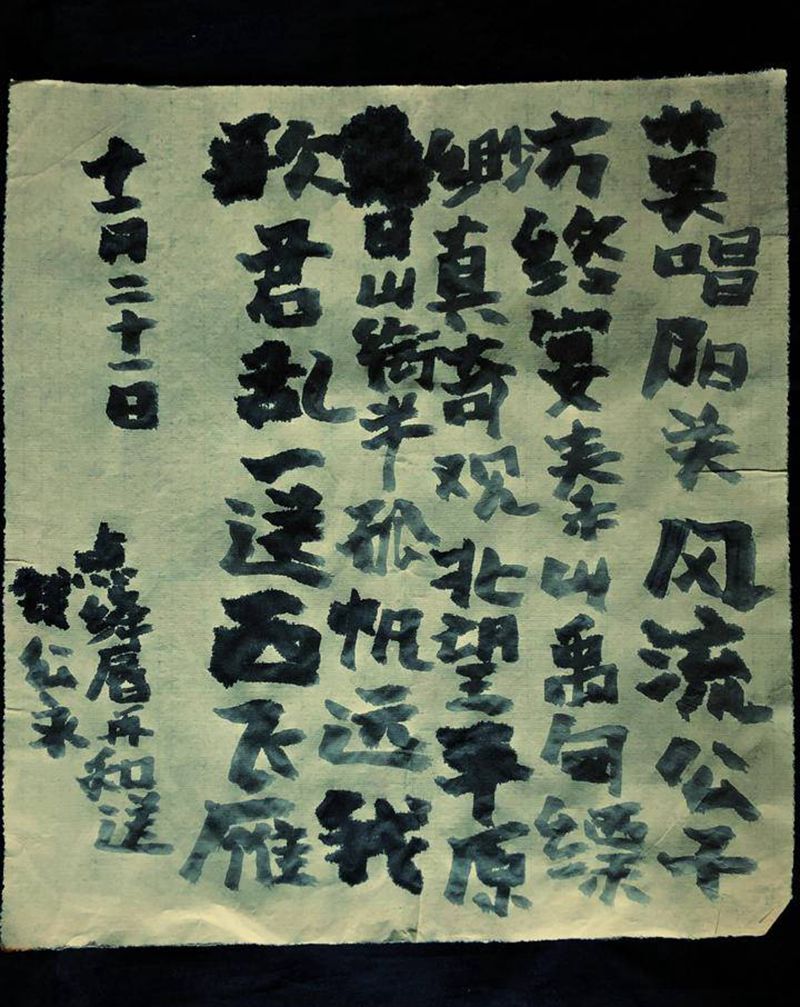 莫唱阳关风流公子
方终宴秦山禹甸缥
缈真奇观北望平原
日山衔半孤帆远我
歌君乱一送西飞雁
十一月二十一日
点绛唇再和送
公永